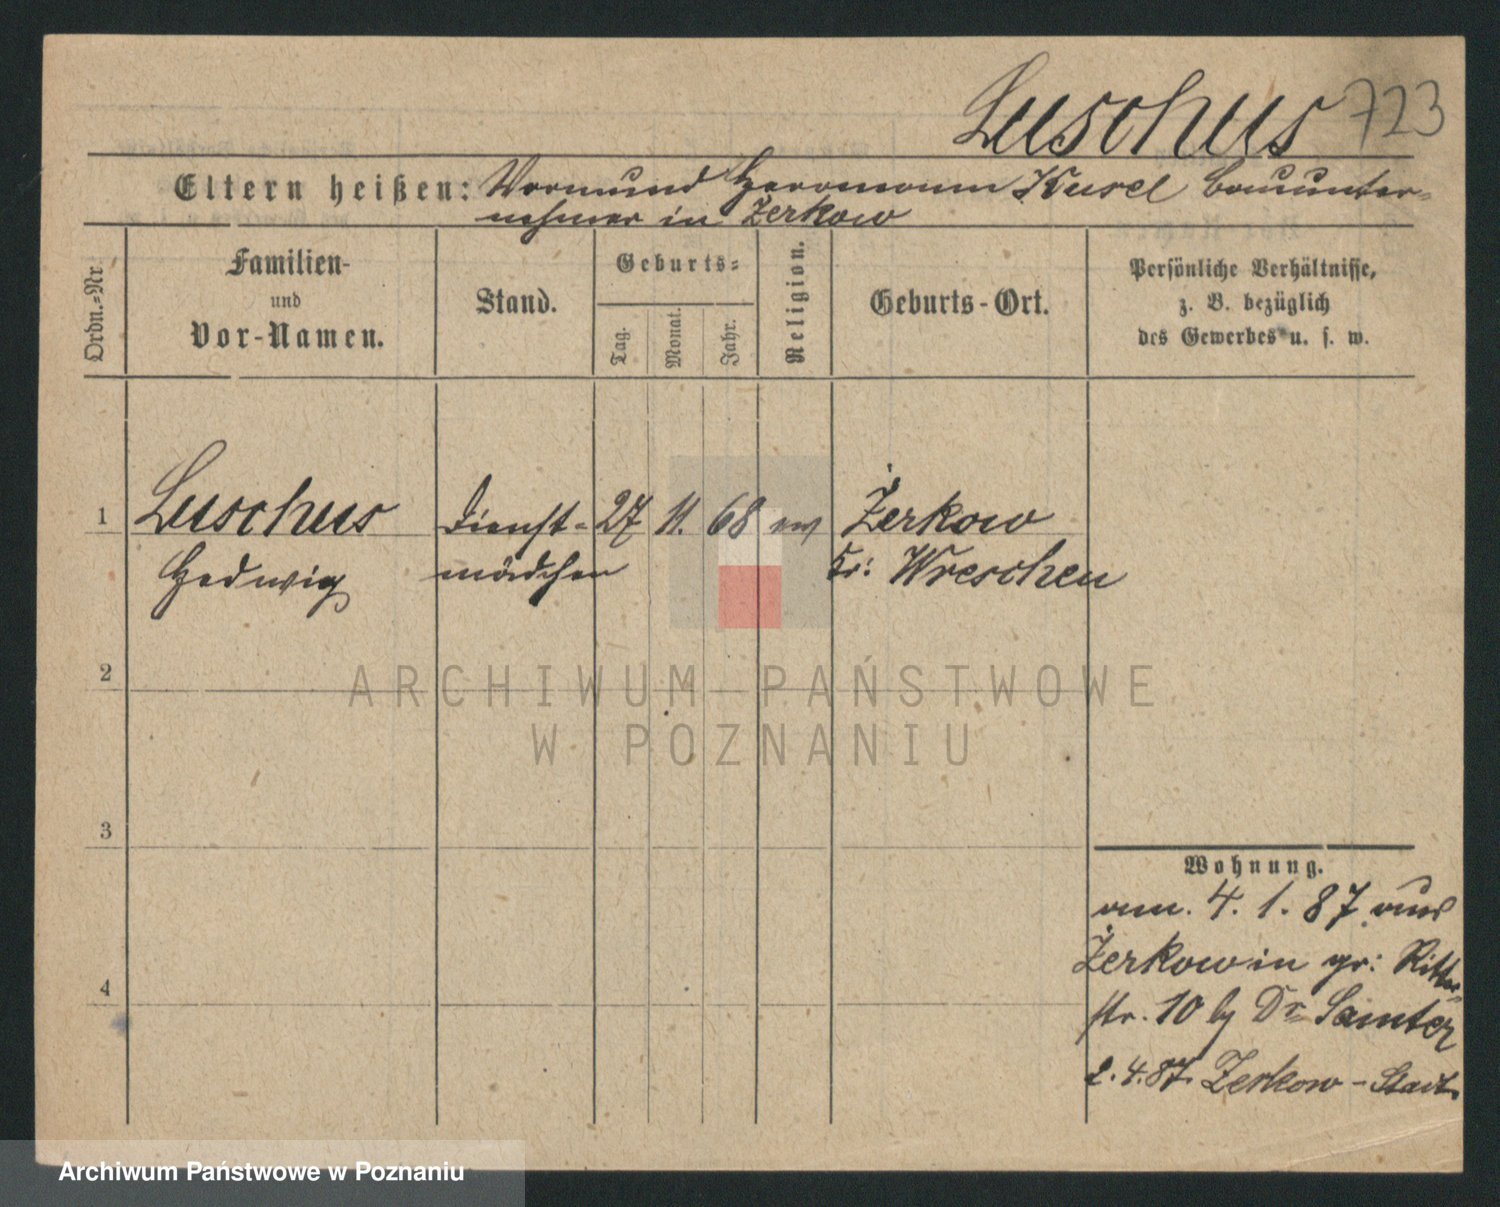 Luschus 723
Eltern heißen: Vormund Herrmann Kusel Bauunter-
nehmer in Żerkow
Ordn.-Nr.
Familien-
und
Vor-Namen.
Stand.
Geburts-
Tag.
Monat.
Jahr.
Religion.
Geburts-Ort.
Persönliche Verhältnisse,
z. B. bezüglich
des Gewerbes u. s. w.
1 Luschus Dienst- 27 11. 68 ev Żerkow
Hedwig mädchen Kr: Wreschen
2
ARCHIWUM PAŃSTWOWE
W POZNANIU
3
Wohnung.
am. 4. 1. 87 aus
Żerkow in gr: Ritter-
4
str. 10 by Dr Samter
2. 4. 87. Zerkow - Stadt.
Archiwum Państwowe w Poznaniu